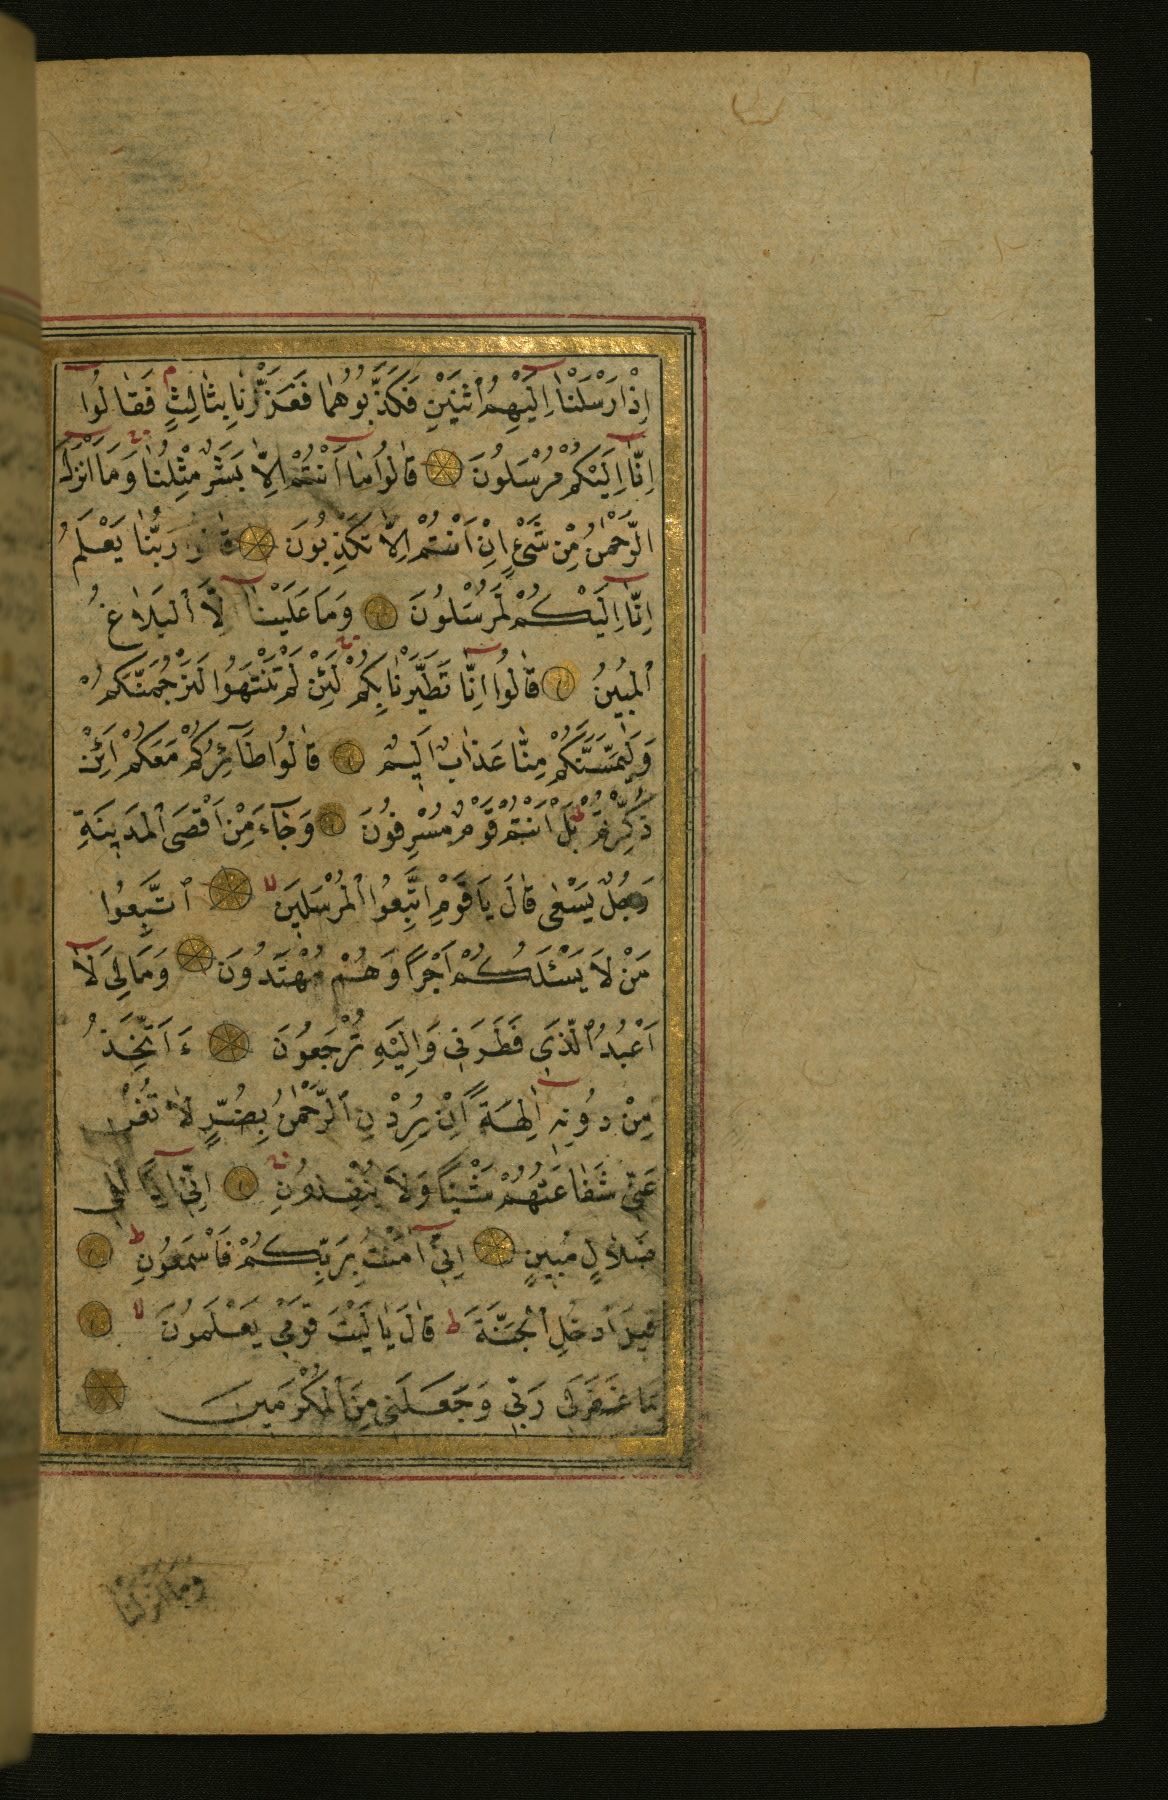 اِذْ اَرْسَلْنَٓا اِلَيْهِمُ اثْنَيْنِ فَكَذَّبُوهُمَا فَعَزَّزْنَا بِثَالِثٍ فَقَالُٓوا
اِنَّٓا اِلَيْكُمْ مُرْسَلُونَ قَالُوا مَٓا اَنْتُمْ اِلَّا بَشَرٌ مِثْلُنَا وَمَٓا اَنْزَلَ
الرَّحْمٰنُ مِنْ شَيْءٍ اِنْ اَنْتُمْ اِلَّا تَكْذِبُونَ رَبُّنَا يَعْلَمُ
اِنَّٓا اِلَيْكُمْ لَمُرْسَلُونَ وَمَا عَلَيْنَٓا اِلَّا الْبَلَاغُ
الْمُبِينُ قَالُٓوا اِنَّا تَطَيَّرْنَا بِكُمْ لَئِنْ لَمْ تَنْتَهُوا لَنَرْجُمَنَّكُمْ
وَلَيَمَسَّنَّكُمْ مِنَّا عَذَابٌ اَلِيمٌ قَالُوا طَٓائِرُكُمْ مَعَكُمْ اَئِنْ
ذُكِّرْتُمْ بَلْ اَنْتُمْ قَوْمٌ مُسْرِفُونَ وَجَٓاءَ مِنْ اَقْصَى الْمَدِينَةِ
رَجُلٌ يَسْعٰى قَالَ يَا قَوْمِ اتَّبِعُوا الْمُرْسَلِينَ اتَّبِعُوا
مَنْ لَا يَسْـَٔلُكُمْ اَجْرًا وَهُمْ مُهْتَدُونَ وَمَا لِيَ لَٓا
اَعْبُدُ الَّذِي فَطَرَنِي وَاِلَيْهِ تُرْجَعُونَ ءَاَتَّخِذُ
مِنْ دُونِهِ اٰلِهَةً اِنْ يُرِدْنِ الرَّحْمٰنُ بِضُرٍّ لَا تُغْنِ
عَنِّي شَفَاعَتُهُمْ شَيْئًا وَلَا يُنْقِذُونِ اِنِّٓي اِذًا لَفِي
ضَلَالٍ مُبِينٍ اِنِّٓي اٰمَنْتُ بِرَبِّكُمْ فَاسْمَعُونِ
قِيلَ ادْخُلِ الْجَنَّةَ قَالَ يَا لَيْتَ قَوْمِي يَعْلَمُونَ
بِمَا غَفَرَ لِي رَبِّي وَجَعَلَنِي مِنَ الْمُكْرَمِينَ
وما انزلنا